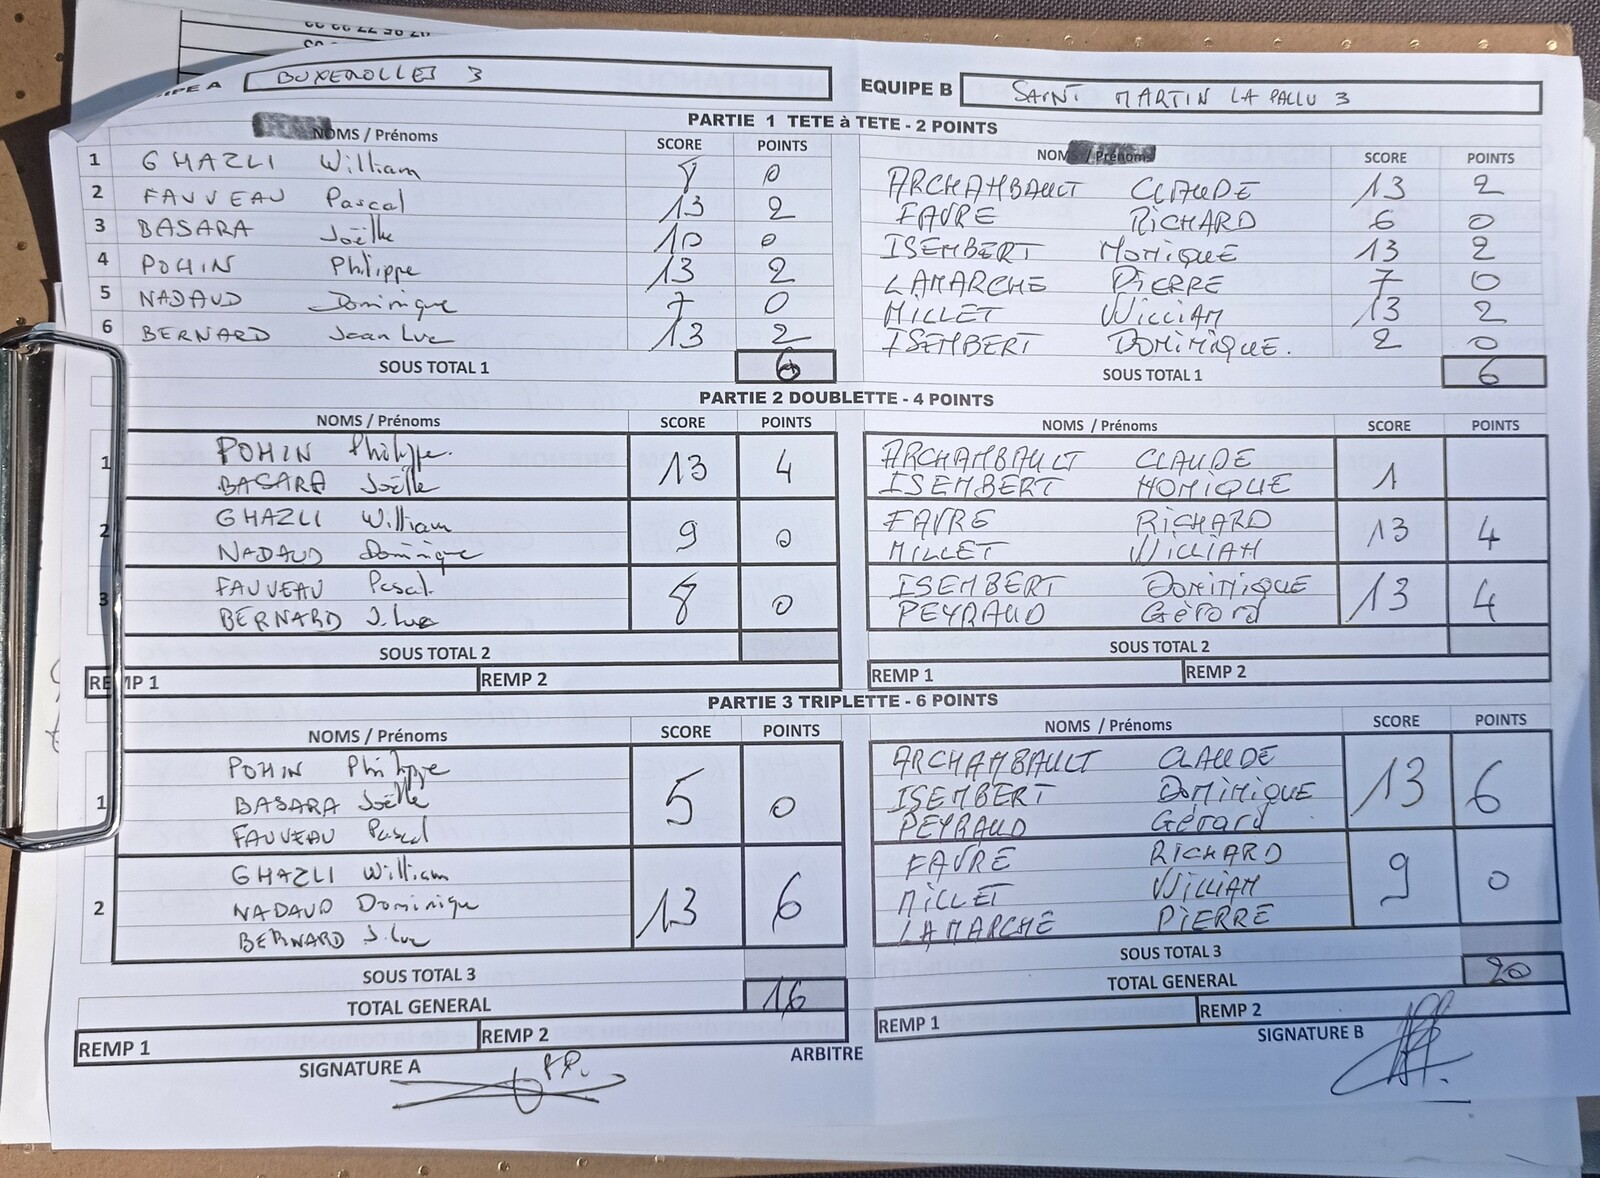 EQUIPE A BUXEROLLES 3
EQUIPE B SAINT MARTIN LA PALLU 3
PARTIE 1 TETE à TETE - 2 POINTS
NOMS / Prénoms SCORE POINTS
1 GHAZLI William 8 0
2 FAUVEAU Pascal 13 2
3 BASARA Joëlle 10 0
4 POHIN Philippe 13 2
5 NADAUD Dominique 7 0
6 BERNARD Jean Luc 13 2
SOUS TOTAL 1 6
NOMS / Prénoms SCORE POINTS
ARCHAMBAULT CLAUDE 13 2
FAVRE RICHARD 6 0
ISEMBERT MONIQUE 13 2
LAMARCHE PIERRE 7 0
MILLET WILLIAM 13 2
ISEMBERT DOMINIQUE. 2 0
SOUS TOTAL 1 6
PARTIE 2 DOUBLETTE - 4 POINTS
NOMS / Prénoms SCORE POINTS
1 POHIN Philippe. 13 4
BASARA Joëlle
2 GHAZLI William 9 0
NADAUD Dominique
3 FAUVEAU Pascal. 8 0
BERNARD J. Luc
SOUS TOTAL 2
REMP 1 REMP 2
NOMS / Prénoms SCORE POINTS
ARCHAMBAULT CLAUDE 1
ISEMBERT MONIQUE
FAVRE RICHARD 13 4
MILLET WILLIAM
ISEMBERT DOMINIQUE 13 4
PEYRAUD Gérard
SOUS TOTAL 2
REMP 1 REMP 2
PARTIE 3 TRIPLETTE - 6 POINTS
NOMS / Prénoms SCORE POINTS
1 POHIN Philippe 5 0
BASARA Joëlle
FAUVEAU Pascal
2 GHAZLI William 13 6
NADAUD Dominique
BERNARD J. Luc
SOUS TOTAL 3
TOTAL GENERAL 16
REMP 1 REMP 2
SIGNATURE A
NOMS / Prénoms SCORE POINTS
ARCHAMBAULT CLAUDE 13 6
ISEMBERT DOMINIQUE
PEYRAUD Gérard
FAVRE RICHARD 9 0
MILLET WILLIAM
LAMARCHE PIERRE
SOUS TOTAL 3
TOTAL GENERAL 20
REMP 1 REMP 2
ARBITRE
SIGNATURE B